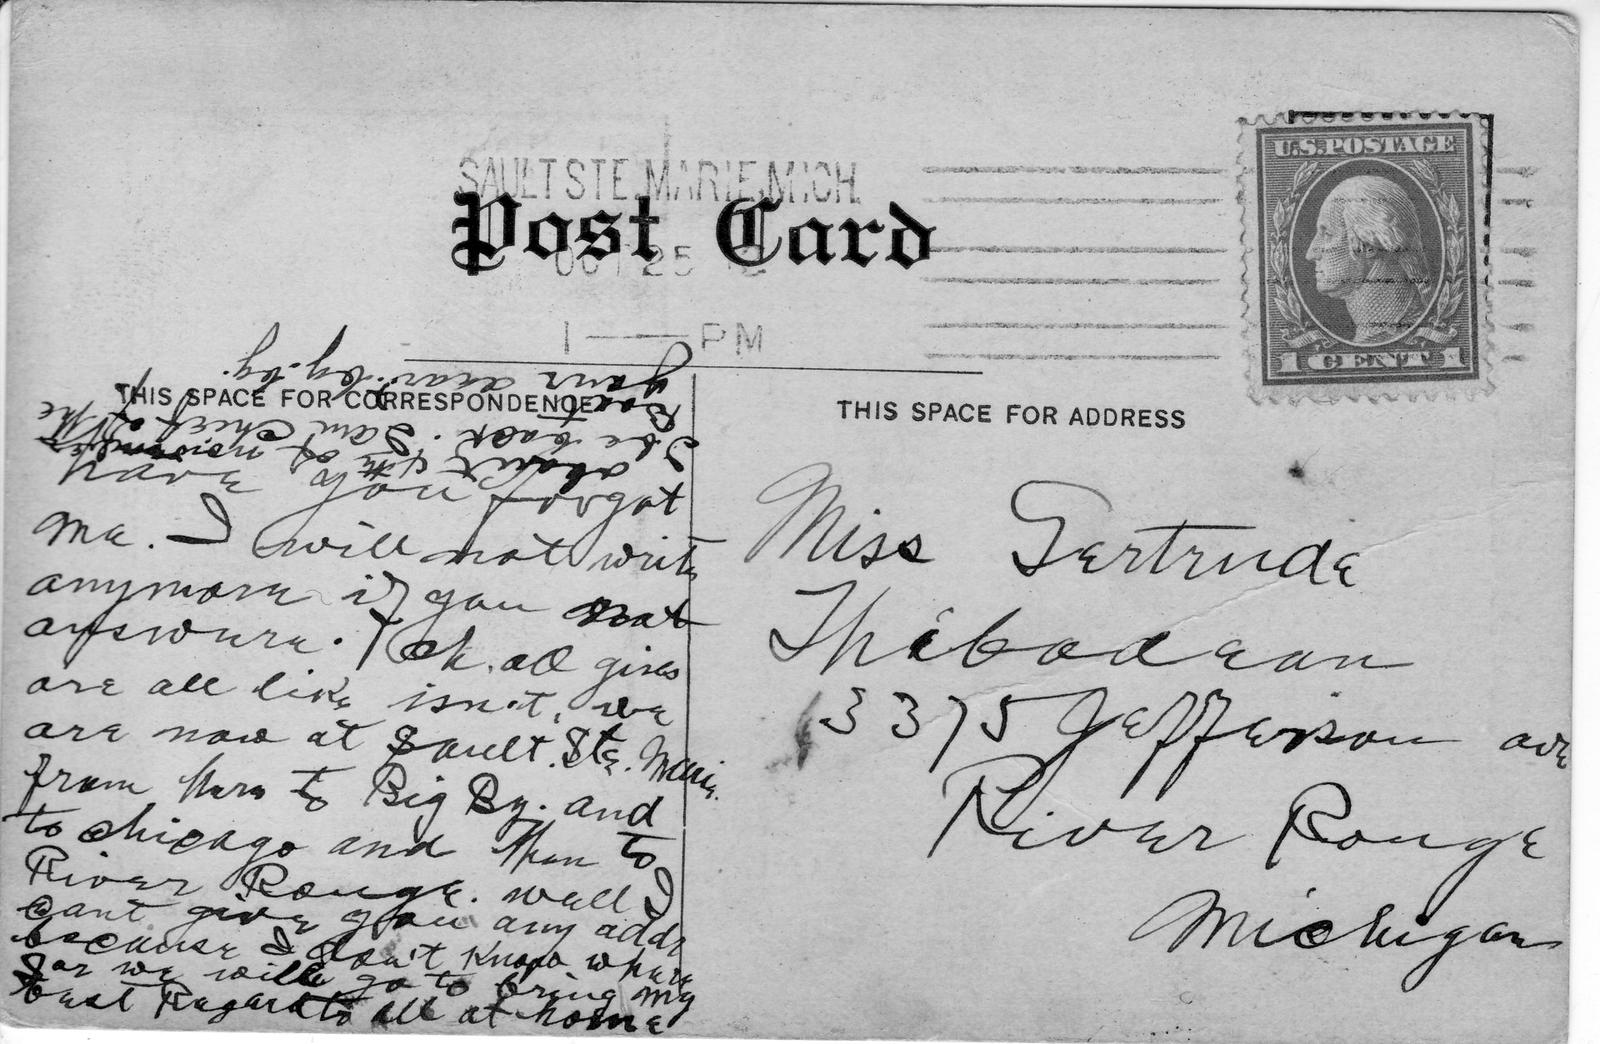 U.S. POSTAGE
1 CENT 1
SAULT STE. MARIE, MICH.
Post Card
OCT 25 12
1 — PM
THIS SPACE FOR CORRESPONDENCE
THIS SPACE FOR ADDRESS
have you forgot
me. I will not write
anymore if you not
answere. I
are all like isn't, we
are now at Sault. Ste. Marie.
from here to Big By. and
to chicago and then to
River Rouge. well I
cant give you any addr
because I don't know where
for we will go to bring my
best Regard to all at home
about 4th of
I be back. I am chief of the
Boat
your dear. by. by.
Miss Gertrude
Thibodeau
3375 Jefferson ave
River Rouge
Michigan